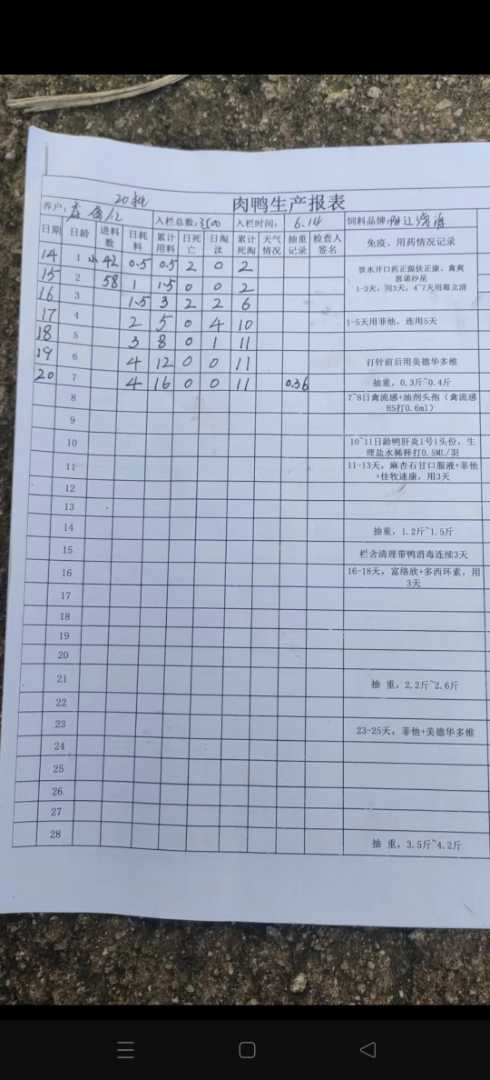 20批 肉鸭生产报表
养户: 入栏总数:3500 入栏时间: 6.14 饲料品牌
日期 日龄 进料数 日耗料 累计用料 日死亡 日淘汰 累计死淘 天气情况 抽重记录 检查人签名 免疫、用药情况记录
14 1 小42 0.5 0.5 2 0 2
15 2 58 1 1.5 0 0 2 1-3天,用3天,
16 3 1.5 3 2 2 6
17 4 2 5 0 4 10 1-5天用菲他,连用5天
18 5 3 8 0 1 11
19 6 4 12 0 0 11 打针前后用美德华多维
20 7 4 16 0 0 11 0.36 抽重,0.3斤~0.4斤
8 7~8日禽流感+油剂头孢(禽流感H5打0.6ml)
9
10 10~11日龄鸭肝炎1号1头份,生理盐水稀释打0.5ML/羽
11 11-13天,麻杏石甘口服液+菲他+佳牧速康,用3天
12
13
14 抽重,1.2斤~1.5斤
15 栏舍清理带鸭消毒连续3天
16 16-18天,富络欣+多西环素,用3天
17
18
19
20
21 抽 重,2.2斤~2.6斤
22
23 23-25天,菲他+美德华多维
24
25
26
27
28 抽 重,3.5斤~4.2斤